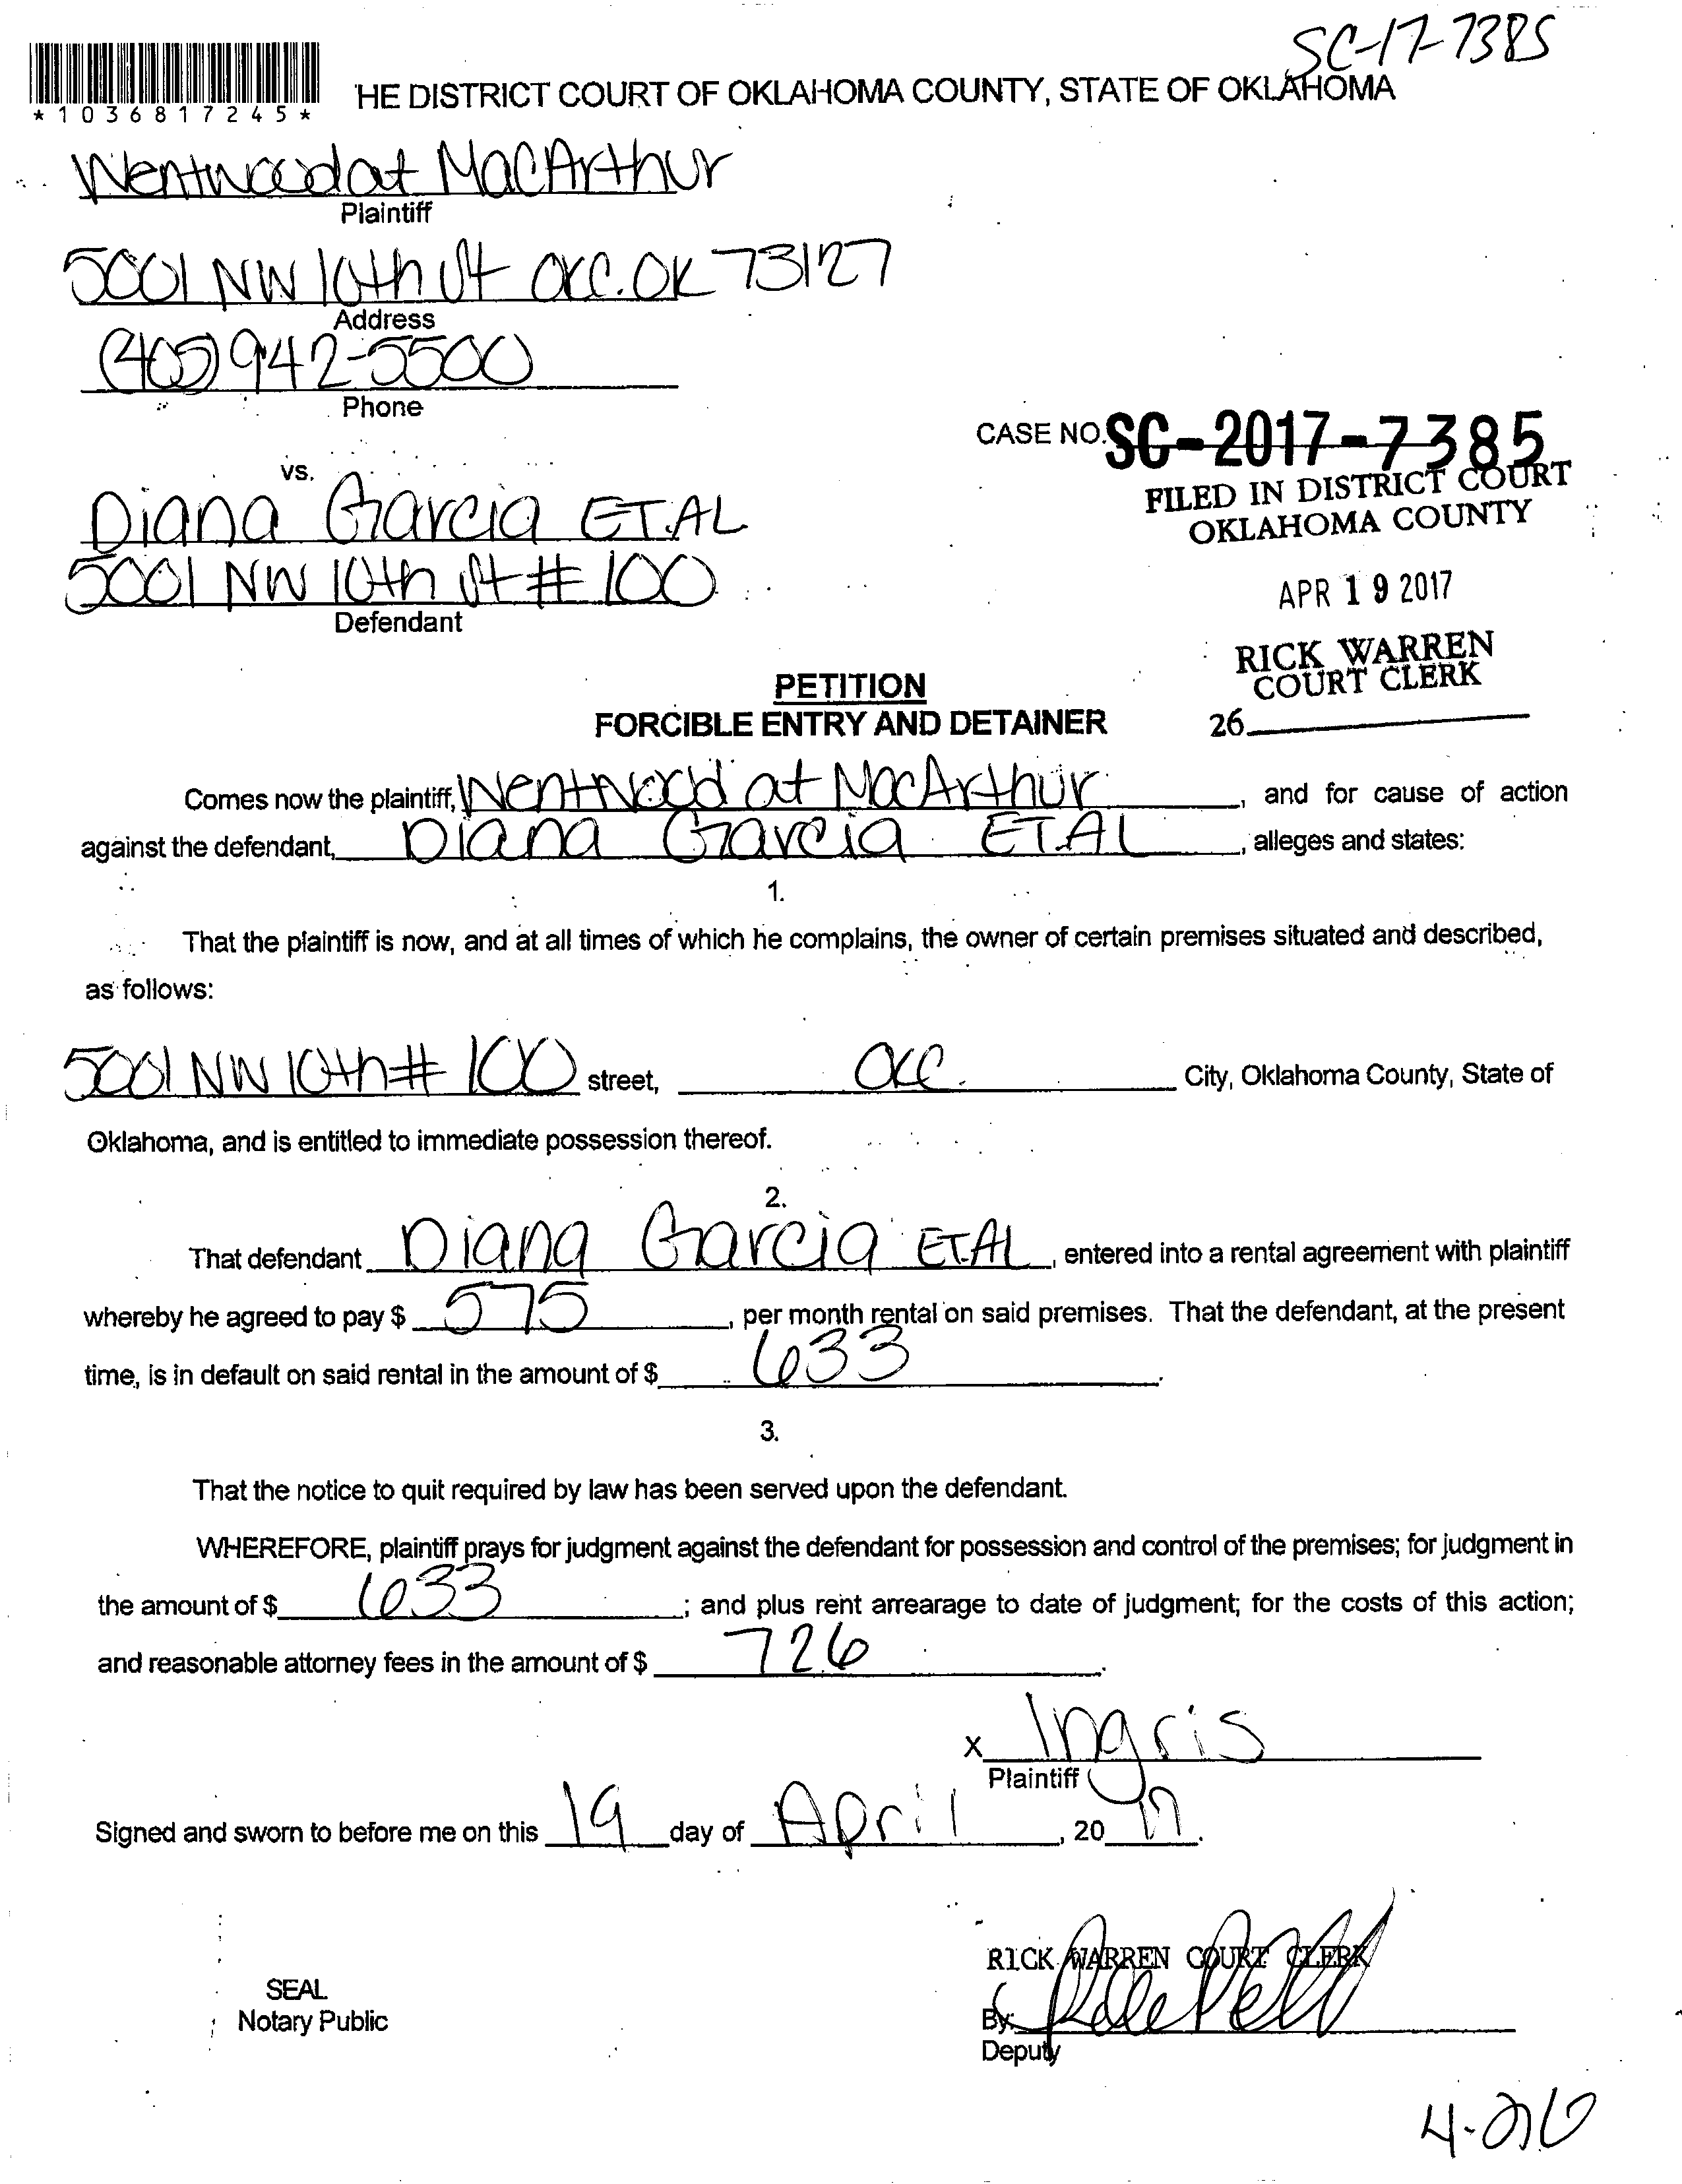 SC-17-7385
*1036817245*
HE DISTRICT COURT OF OKLAHOMA COUNTY, STATE OF OKLAHOMA
Wentwood at MacArthur
Plaintiff
5001 NW 10th St OKC. OK 73127
Address
(405) 942-5500
Phone
CASE NO. SC-2017-7385
vs.
FILED IN DISTRICT COURT
OKLAHOMA COUNTY
Diana Garcia ET.AL
5001 NW 10th St # 100
Defendant
APR 19 2017
RICK WARREN
COURT CLERK
26
PETITION
FORCIBLE ENTRY AND DETAINER
Comes now the plaintiff, Wentwood at MacArthur, and for cause of action
against the defendant, Diana Garcia ET.AL, alleges and states:
1.
That the plaintiff is now, and at all times of which he complains, the owner of certain premises situated and described,
as follows:
5001 NW 10th # 100 street, OKC. City, Oklahoma County, State of
Oklahoma, and is entitled to immediate possession thereof.
2.
That defendant Diana Garcia ET.AL, entered into a rental agreement with plaintiff
whereby he agreed to pay $ 575, per month rental on said premises. That the defendant, at the present
time, is in default on said rental in the amount of $ 633.
3.
That the notice to quit required by law has been served upon the defendant.
WHEREFORE, plaintiff prays for judgment against the defendant for possession and control of the premises; for judgment in
the amount of $ 633; and plus rent arrearage to date of judgment; for the costs of this action;
and reasonable attorney fees in the amount of $ 726.
X Ingris
Plaintiff
Signed and sworn to before me on this 19 day of April, 20 17.
RICK WARREN COURT CLERK
SEAL
Notary Public
By:
Deputy
4-26